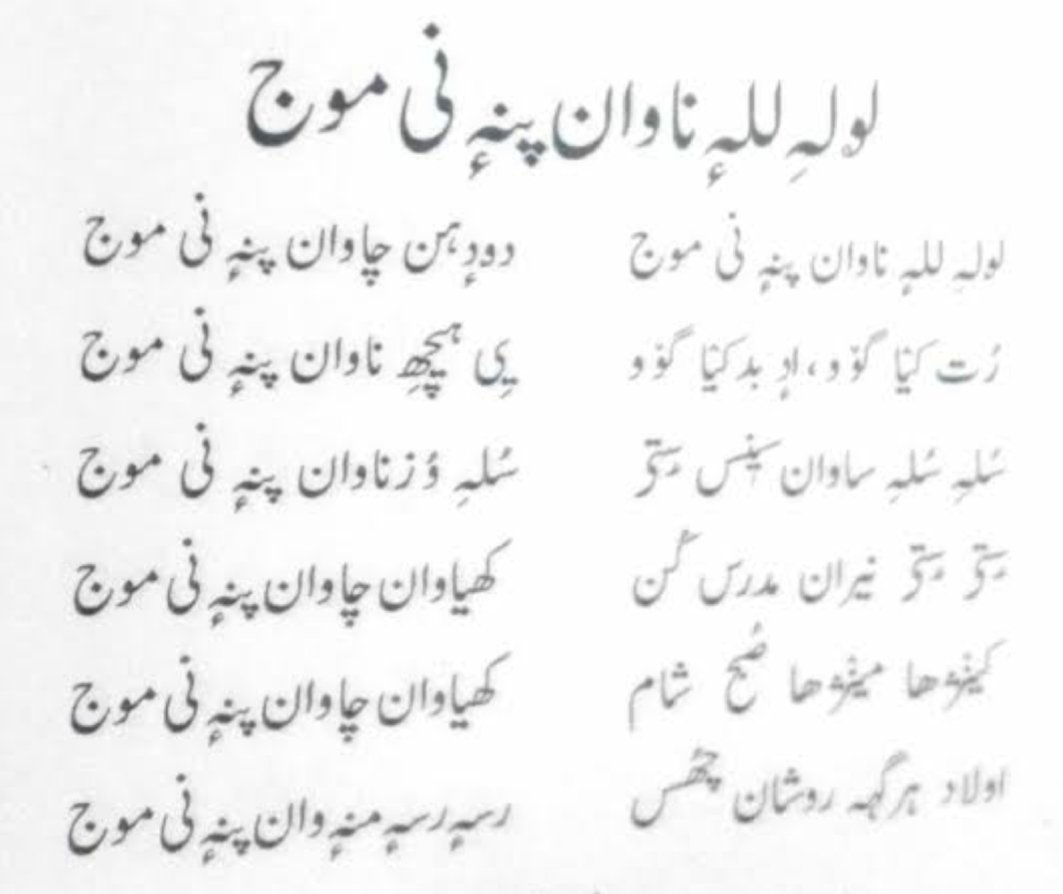 لولہِ للہٕ ناوان پنہٕ نی موج
لولہِ للہٕ ناوان پنہٕ نی موج دودٕ ہن چاوان پنہٕ نی موج
رُت کیٛا گوٚو، ادٕ بد کیٛا گوٚو یِی ہیچھِ ناوان پنہٕ نی موج
سُلہِ سُلہِ ساوان سینس سٟتؠ سُلہِ وُزناوان پنہٕ نی موج
سٟتؠ سٟتؠ نیران مدرس کُن کھیاوان چاوان پنہٕ نی موج
کینٛژھا مینٛژھا صُبح شام کھیاوان چاوان پنہٕ نی موج
اولاد ہرگہہ روشان چھُس رسہٕ رسہٕ منہٕ وان پنہٕ نی موج